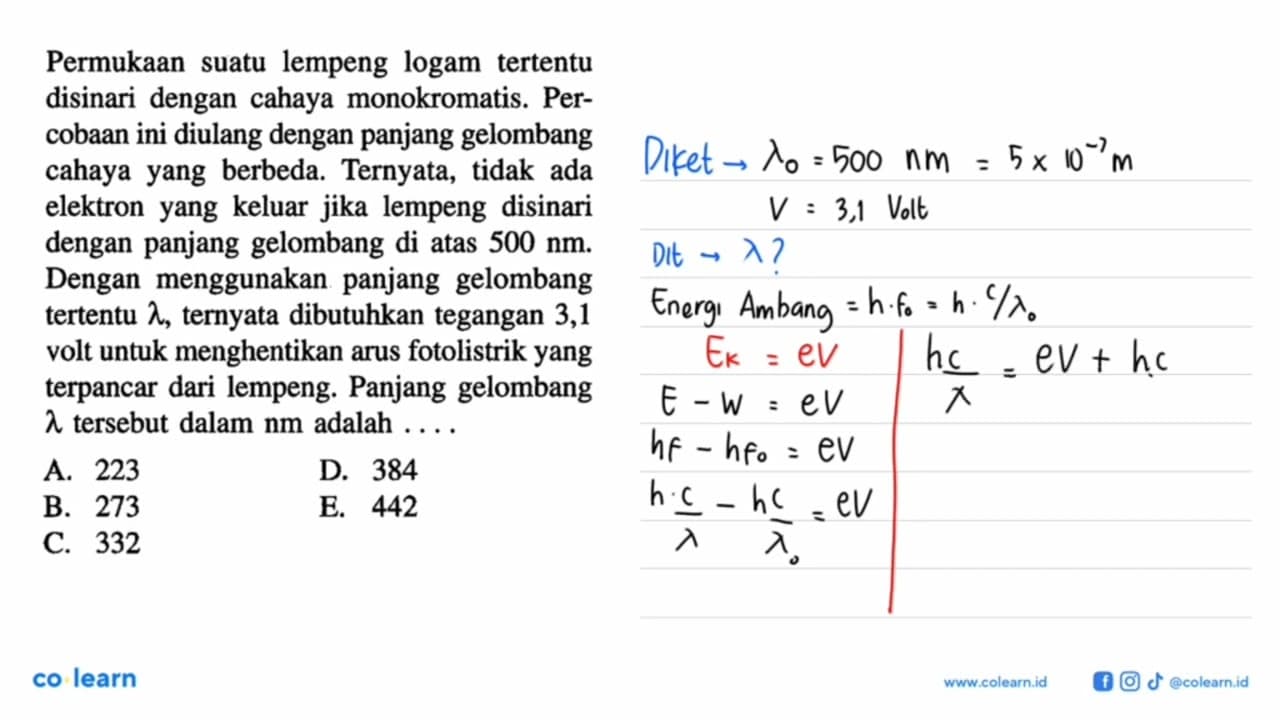 Permukaan suatu lempeng logam tertentu
disinari dengan cahaya monokromatis. Per-
cobaan ini diulang dengan panjang gelombang
cahaya yang berbeda. Ternyata, tidak ada
elektron yang keluar jika lempeng disinari
dengan panjang gelombang di atas 500 nm.
Dengan menggunakan panjang gelombang
tertentu λ, ternyata dibutuhkan tegangan 3,1
volt untuk menghentikan arus fotolistrik yang
terpancar dari lempeng. Panjang gelombang
λ tersebut dalam nm adalah . . . .
A. 223
B. 273
C. 332
D. 384
E. 442
Diket → λ₀ = 500 nm = 5 x 10⁻⁷ m
V = 3,1 Volt
Dit → λ?
Energi Ambang = h.f₀ = h. c/λ₀
Eк = eV
E - W = eV
hf - hf₀ = eV
h.c/λ - hc/λ₀ = eV
hc/λ = eV + hc
co learn
www.colearn.id
@colearn.id